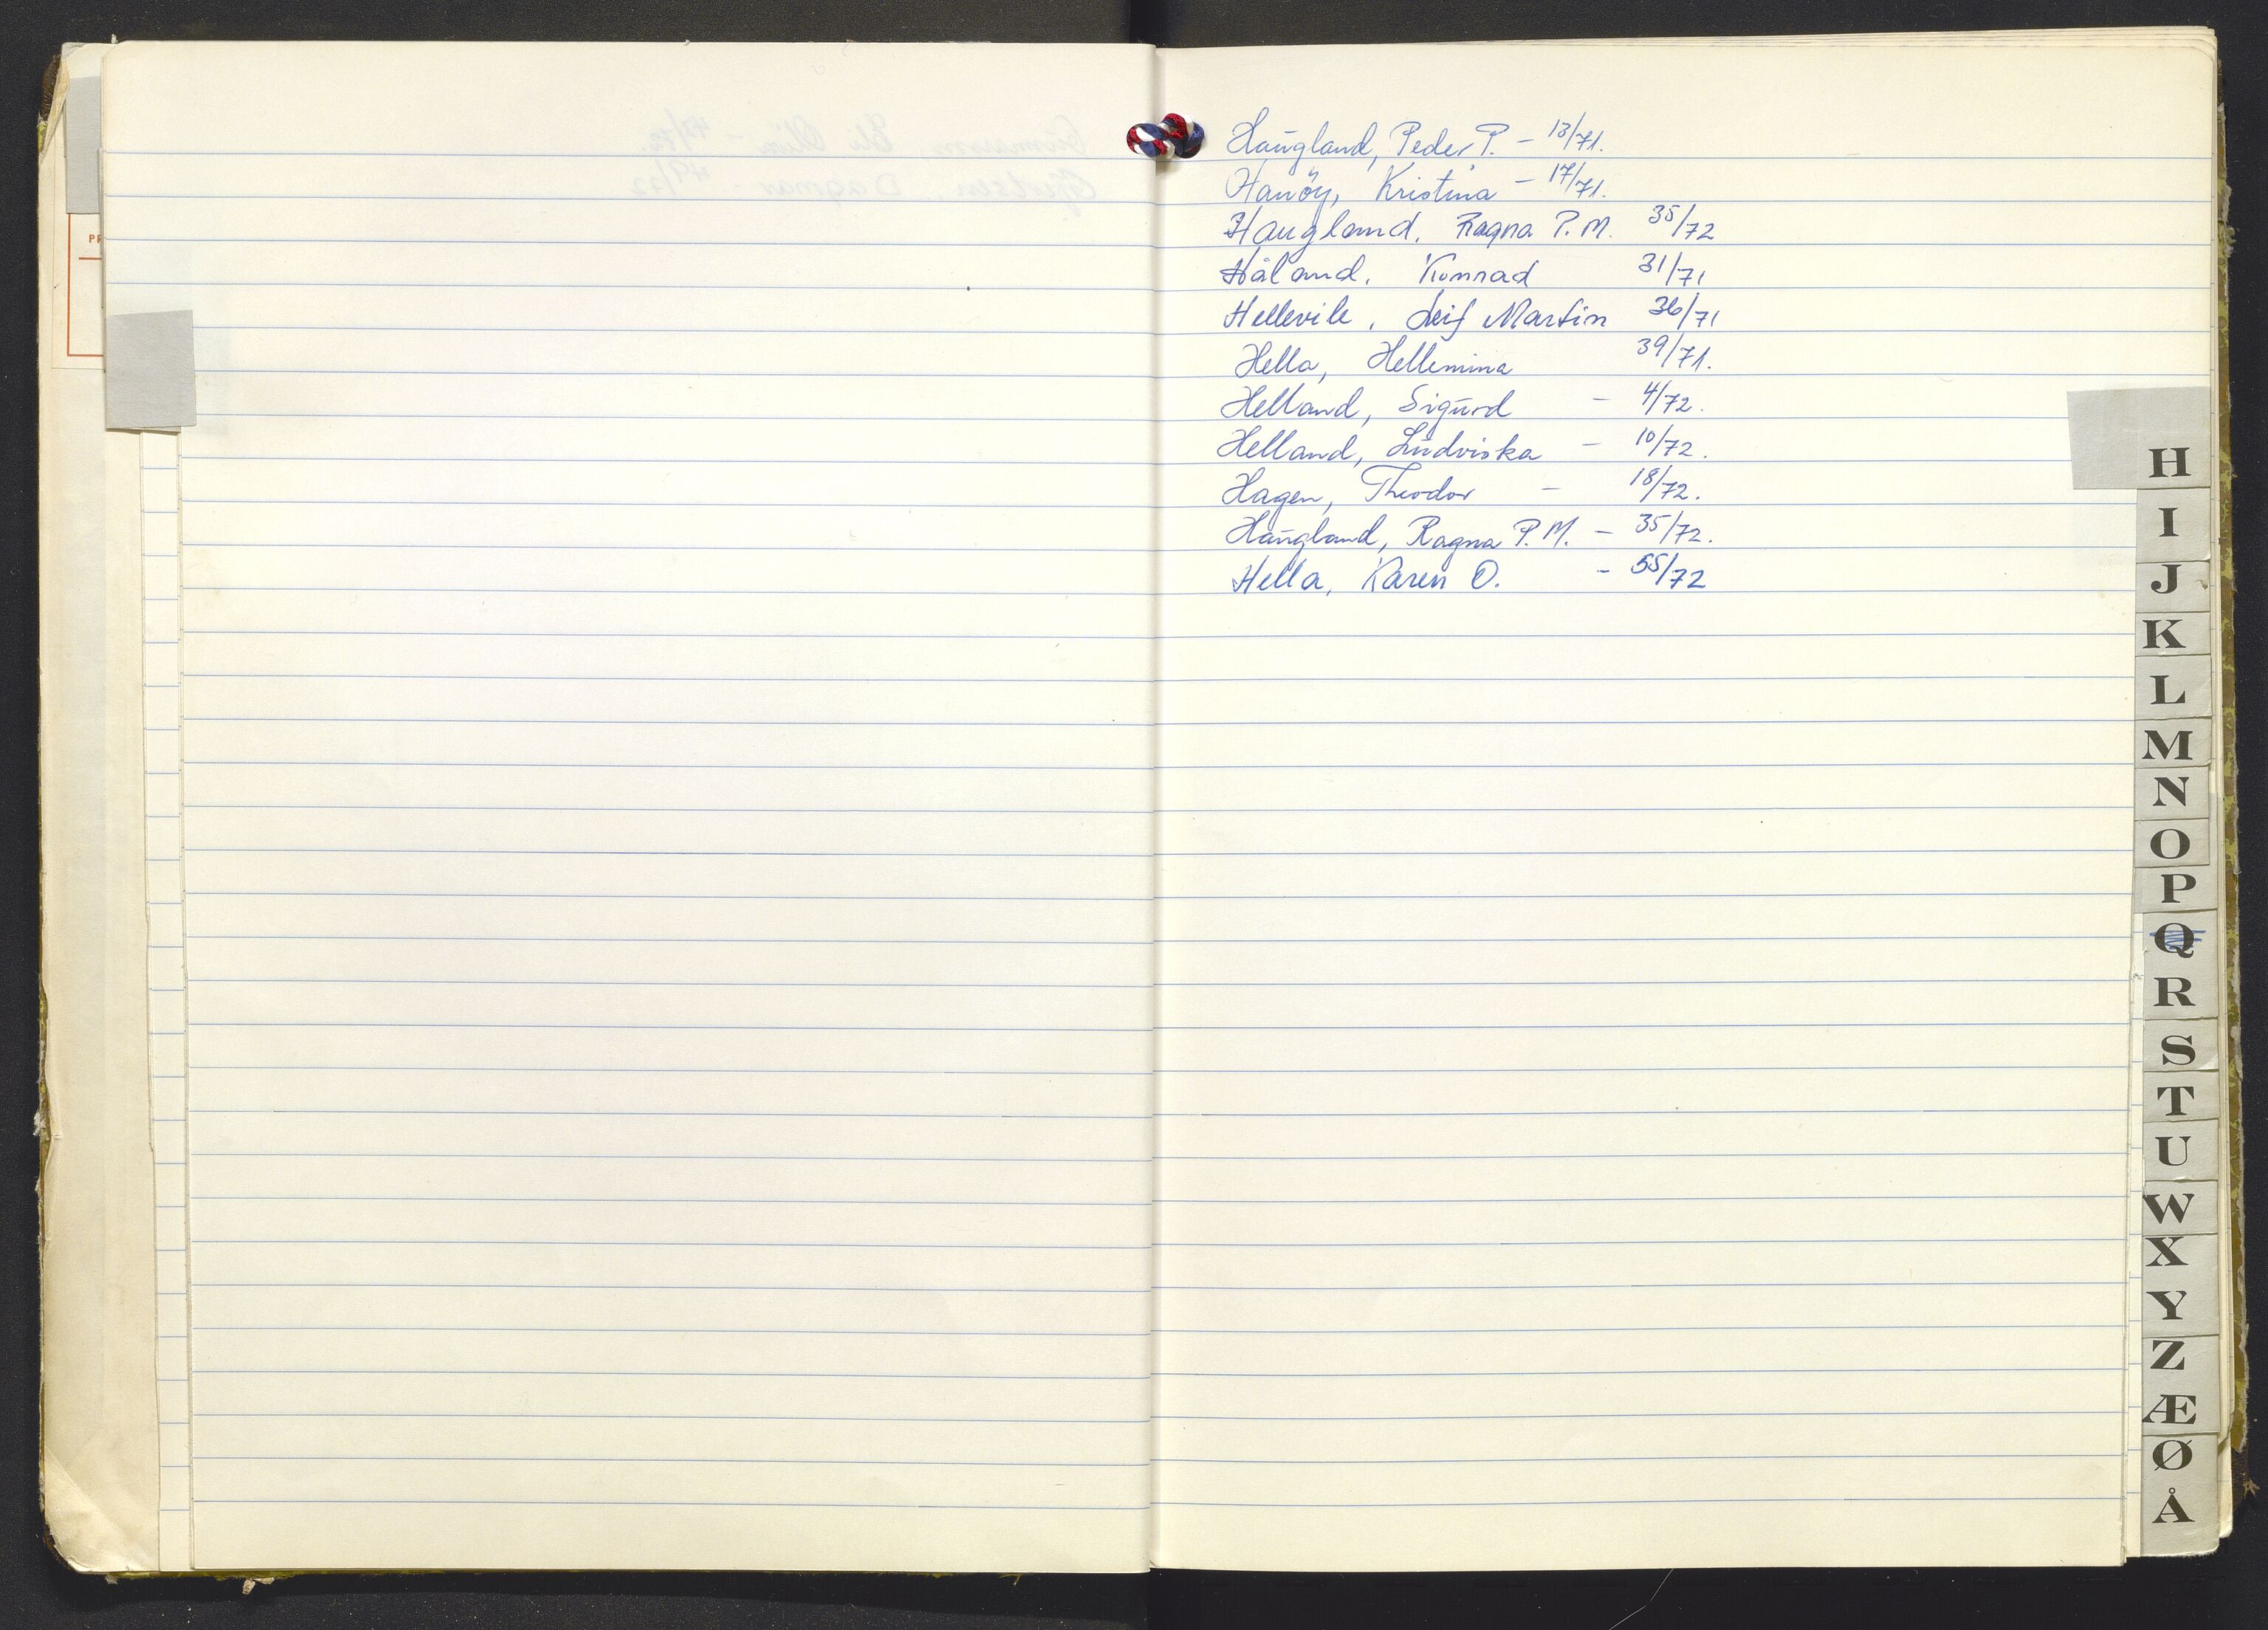 Haugland, Peder P. - 13/71.
Hanöy, Kristina - 17/71.
Haugland, Ragna P. M. 35/72
Håland, Konrad 31/71
Hellevik, Leif Martin 36/71
Hella, Hellemina 39/71.
Helland, Sigurd - 4/72.
Helland, Ludviska - 10/72.
Hagen, Theodor - 18/72.
Haugland, Ragna P. M. - 35/72.
Hella, Karen O. - 55/72
H
I
J
K
L
M
N
O
P
Q
R
S
T
U
W
X
Y
Z
Æ
Ø
Å